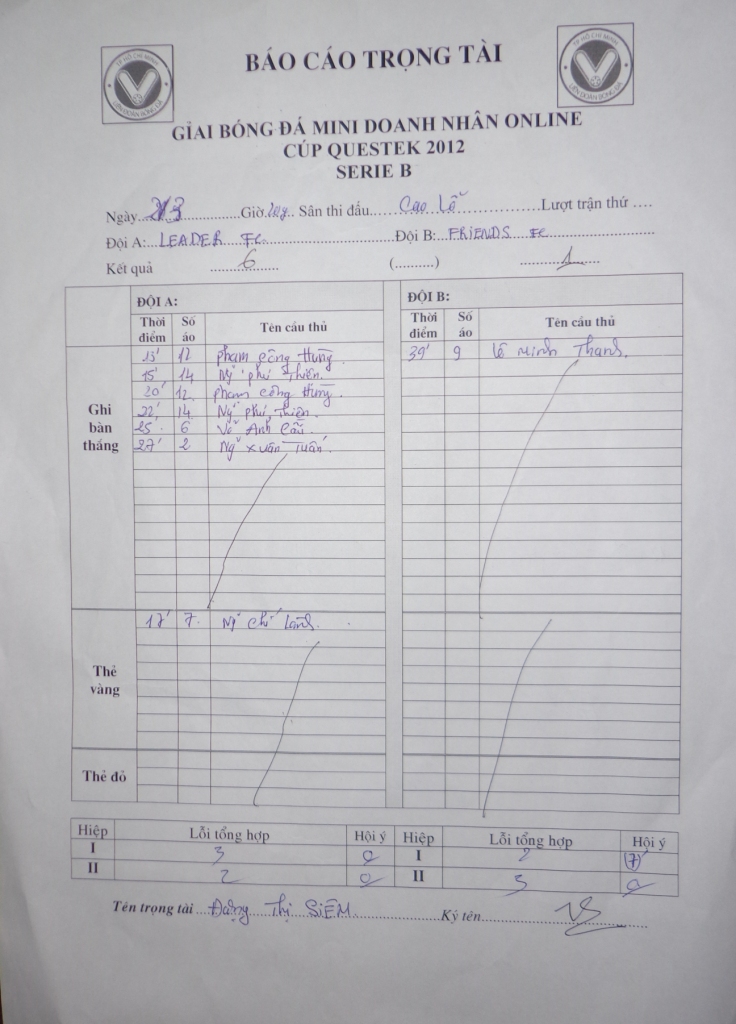 TP HỒ CHÍ MINH
LIÊN ĐOÀN BÓNG ĐÁ
BÁO CÁO TRỌNG TÀI
TP HỒ CHÍ MINH
LIÊN ĐOÀN BÓNG ĐÁ
GIẢI BÓNG ĐÁ MINI DOANH NHÂN ONLINE
CÚP QUESTEK 2012
SERIE B
Ngày.............Giờ....... Sân thi đấu...... Cao Lỗ ..............Lượt trận thứ ....
Đội A: LEADER FC. Đội B: FRIENDS FC
Kết quả 6 (..........) 1
ĐỘI A: ĐỘI B:
Thời điểm Số áo Tên cầu thủ Thời điểm Số áo Tên cầu thủ
Ghi bàn thắng
13' 12 Phạm Công Hùng 39' 9 Lê Minh Thanh.
15' 14 Ng~ Phú Thiện.
20' 12 Phạm Công Hùng.
22' 14. Ng~ Phú Thiện.
25. 6 Võ Anh
27' 2 Ng~ Xuân Tuấn.
Thẻ vàng
17' 7. Ng~ Chí
Thẻ đỏ
Hiệp Lỗi tổng hợp Hội ý Hiệp Lỗi tổng hợp Hội ý
I 3 0 I 2 (7')
II 2 0 II 3 0
Tên trọng tài Đặng Thị SIÊM Ký tên